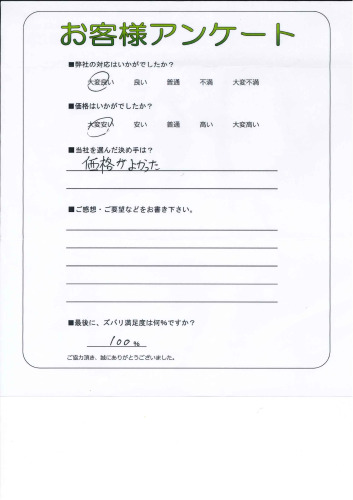 お客様アンケート
■弊社の対応はいかがでしたか？
大変良い 良い 普通 不満 大変不満
■価格はいかがでしたか？
大変安い 安い 普通 高い 大変高い
■当社を選んだ決め手は？
価格がよかった
■ご感想・ご要望などをお書き下さい。
■最後に、ズバリ満足度は何%ですか？
100%
ご協力頂き、誠にありがとうございました。